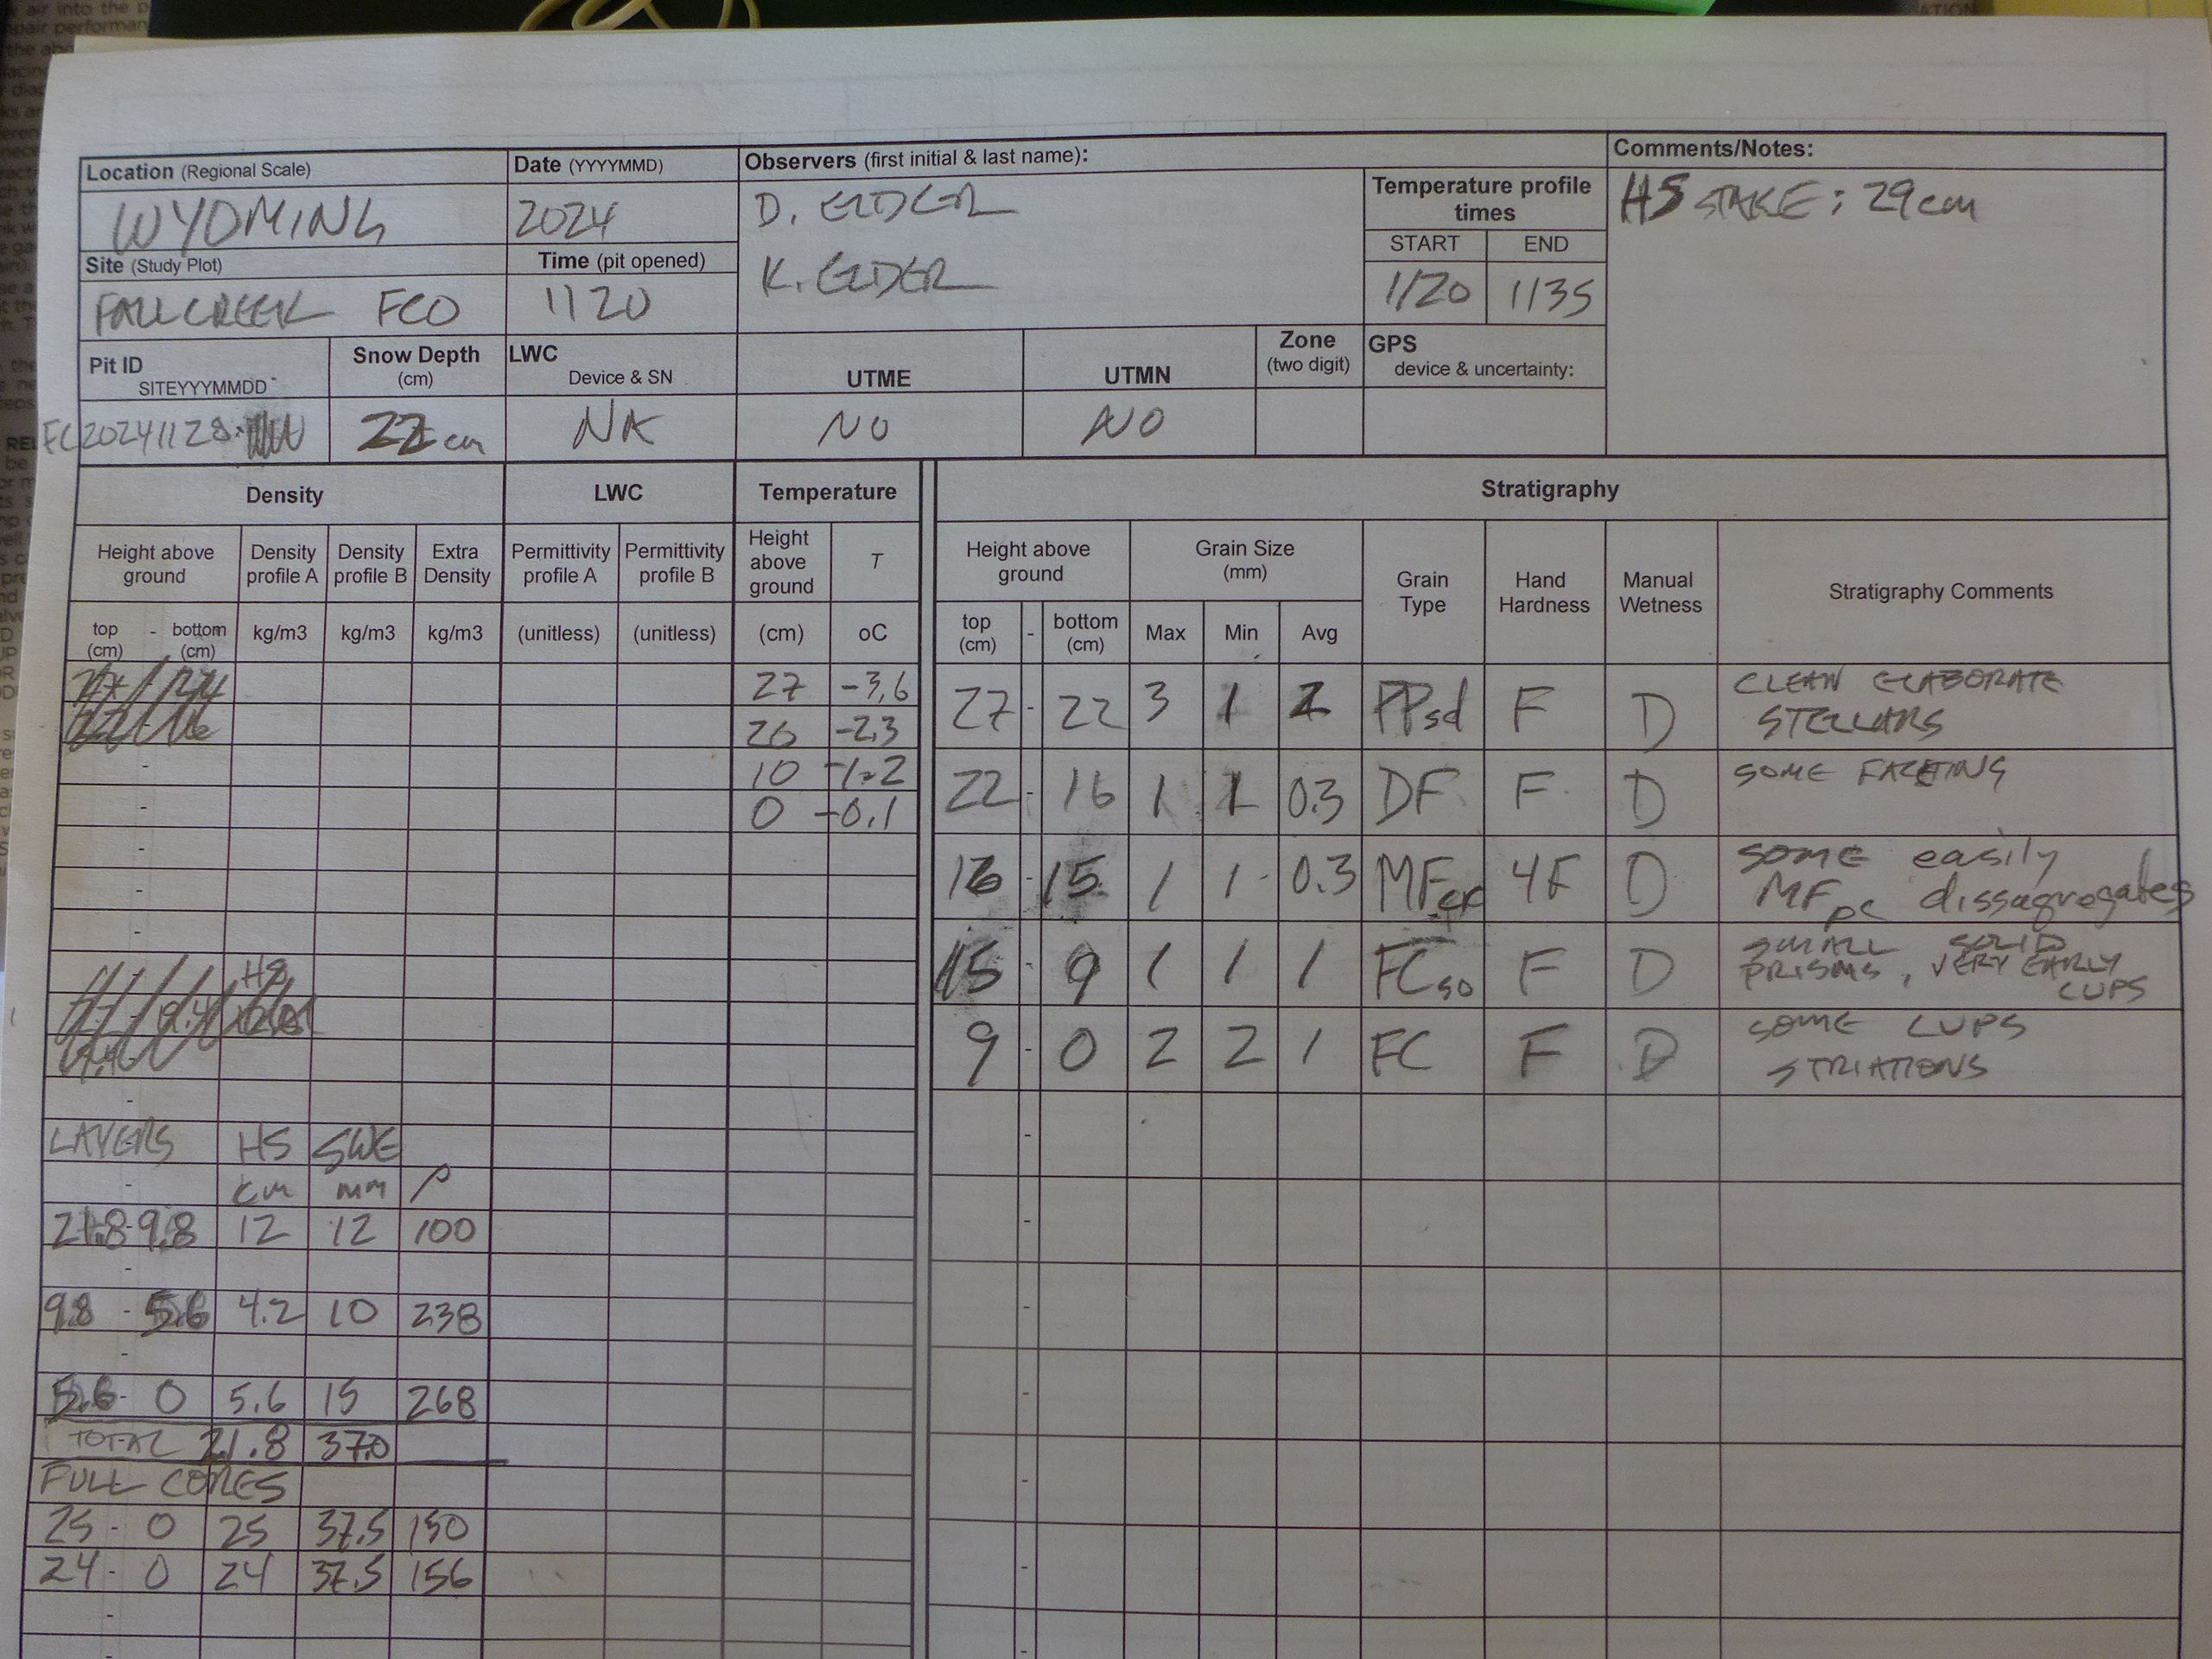 Location (Regional Scale)
WYOMING
Date (YYYYMMD)
2024
Observers (first initial & last name):
D. ELDER
K. ELDER
Temperature profile times
START END
1120 1135
Comments/Notes:
HS STAKE: 29cm
Site (Study Plot)
FALL CREEK FCO
Time (pit opened)
1120
Pit ID
SITEYYYMMDD
FC20241128
Snow Depth
(cm)
27 cm
LWC
Device & SN
NA
UTME
NO
UTMN
NO
Zone
(two digit)
GPS
device & uncertainty:
Density LWC Temperature Stratigraphy
Height above ground
top (cm) - bottom (cm)
Density profile A kg/m3
Density profile B kg/m3
Extra Density kg/m3
Permittivity profile A (unitless)
Permittivity profile B (unitless)
Height above ground (cm)
T oC
27 -3.6
20 -2.3
10 -1.2
0 -0.1
LAYERS HS SWE
cm mm ρ
21.8 - 9.8 12 12 100
9.8 - 5.6 4.2 10 238
5.6 - 0 5.6 15 268
TOTAL 21.8 37.0
FULL CORES
25 - 0 25 37.5 150
24 - 0 24 37.5 156
Height above ground
top (cm) - bottom (cm)
Grain Size (mm)
Max Min Avg
Grain Type
Hand Hardness
Manual Wetness
Stratigraphy Comments
27 - 22 3 1 2 PPsd F D CLEAN ELABORATE STELLARS
22 - 16 1 1 0.3 DF F D SOME FACETING
16 - 15 1 1 0.3 MFcr 4F D SOME MFpc easily dissagregates
15 - 9 1 1 1 FCso F D SMALL SOLID PRISMS, VERY EARLY CUPS
9 - 0 2 2 1 FC F D SOME CUPS STRIATIONS